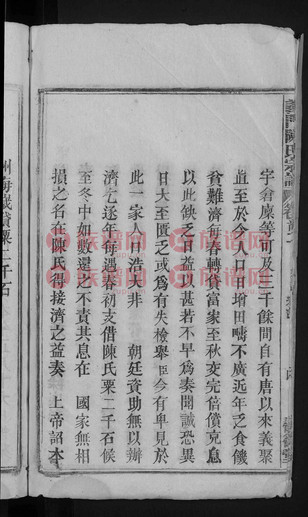 義門陳氏宗譜
宇倉廩等可及三千餘間自有唐以來義聚
直至於今人口日增田疇不廣近年乏食饑
貧難濟每春轉貸富家至秋變完倍償克息
以此缺乏日益以甚若不早爲奏聞誠恐異
日大至匱乏或爲有失檢舉臣今有卑見於
此一家人口浩大非　朝廷資助無以辦
濟乞逐年每遇春初支借陳氏粟二千石候
至冬中如數還之不責其息在　國家無相
損之名在陳氏得接濟之益奏　上帝詔本
州每歲貸粟二千石
族譜网